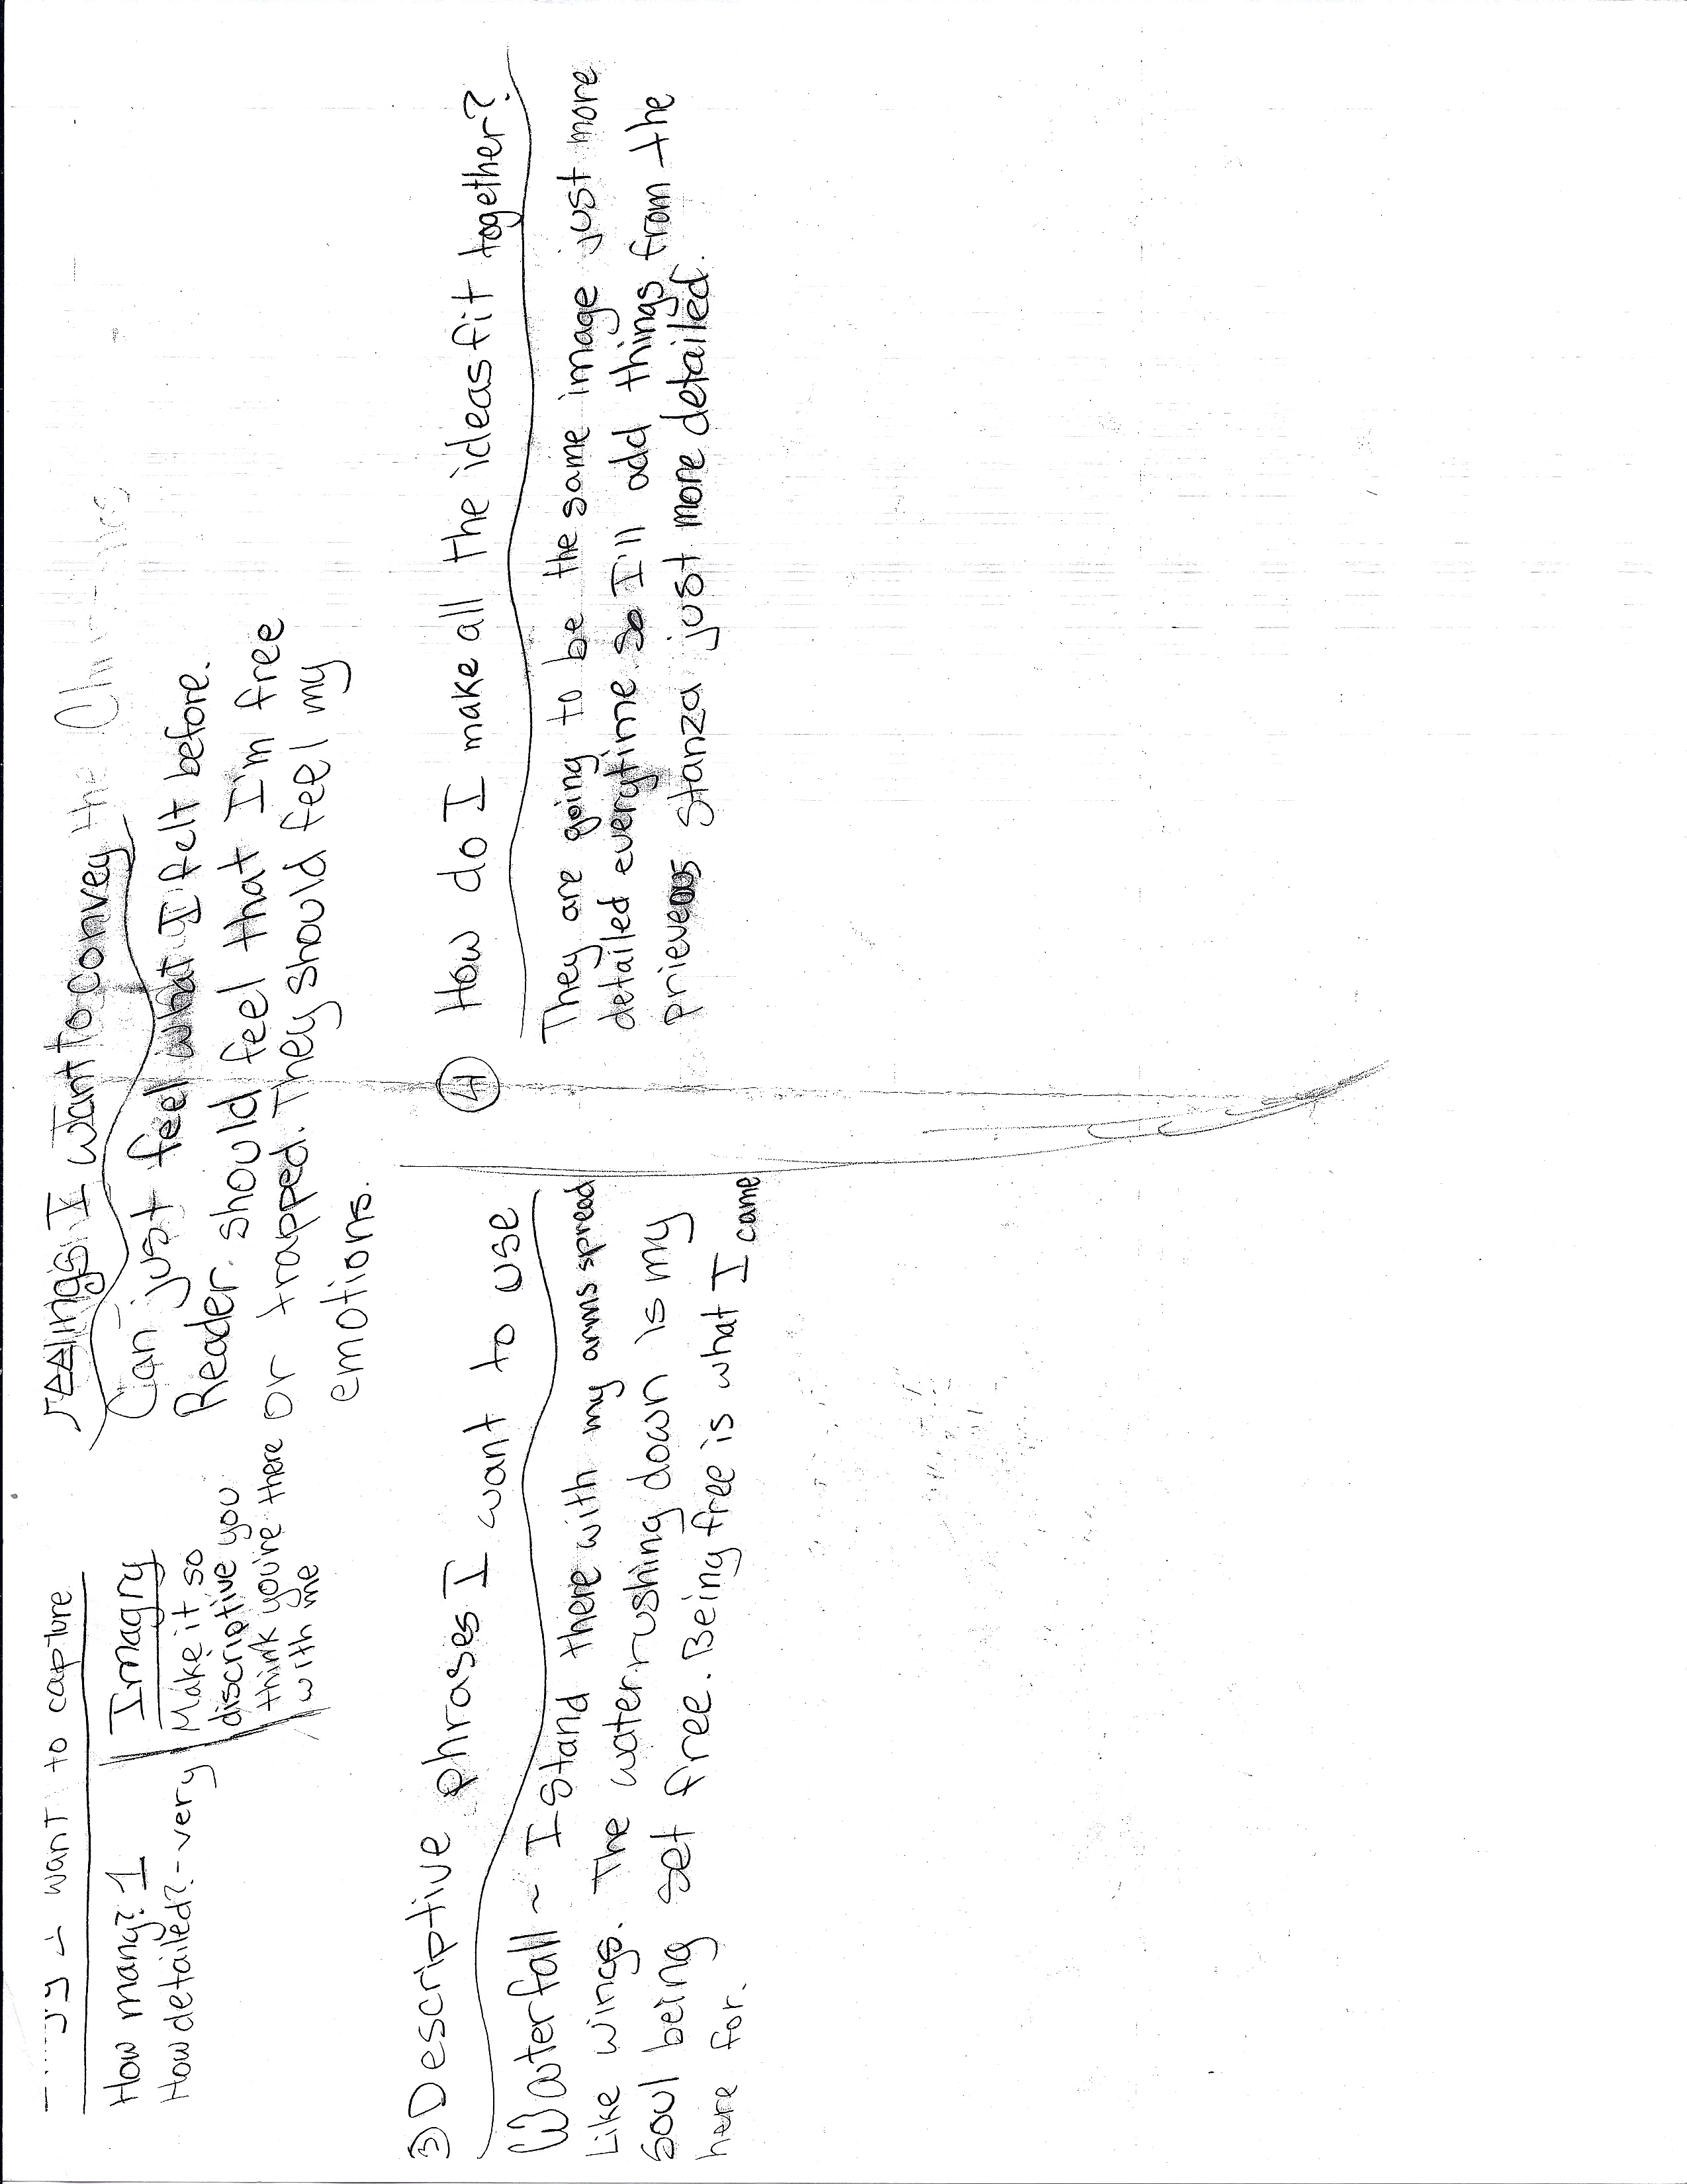 want to capture
How many? 1
How detailed? - very
Imagry
Make it so
discriptive you
think you're there
with me
feelings I want to convey the
Can just feel what I felt before.
Reader should feel that I'm free
or trapped. They should feel my
emotions.
3) Descriptive phrases I want to use
Waterfall ~ I stand there with my arms spread
Like wings. The water rushing down is my
Soul being set free. Being free is what I came
here for.
4 How do I make all the ideas fit together?
They are going to be the same image just more
detailed everytime so I'll add things from the
prieveous stanza just more detailed.